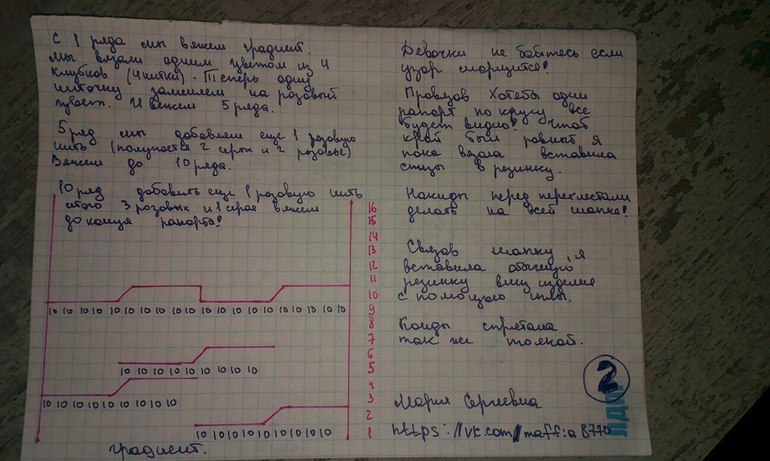 С 1 ряда мы вяжем градиент.
Мы вязали одним цветом из 4
клубков (4 нитки). Теперь одну
ниточку заменяем на розовый
цвет. И вяжем 5 ряда.
5 ряд мы добавляем еще 1 розовую
нить (получается 2 серых и 2 розовые)
Вяжем до 10 ряда.
10 ряд добавить еще 1 розовую нить
итого 3 розовых и 1 серая вяжем
до конца рапорта!
10 10 10 10 10 10 10 10 10 10 10 10 10 10 10 10 10 10
10 10 10 10 10 10 10 10 10
10 10 10 10 10 10 10 10
10 10 10 10 10 10 10 10 10
градиент.
16
15
14
13
12
11
10
9
8
7
6
5
4
3
2
1
Девочки не бойтесь если
узор сморщится!
Провязов хотябы один
рапорт по кругу все
будет видно! Чтоб
край был ровный я
пока вязала вставила
спицы в резинку.
Накиды перед переклестами
делать на всей шапке!
Связов шапку я
вставила обычную
резинку вниз изделие
с помощью иглы.
Концы спретала
так же иголкой.
2
Мария Сергеевна
https://vk.com/maffia8770